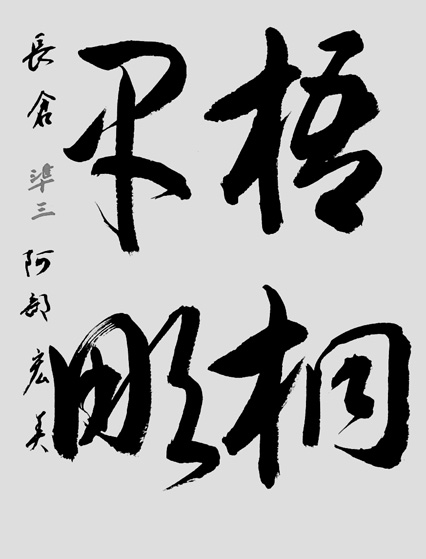 梧桐
早彫
長倉 準三 阿部 宏美